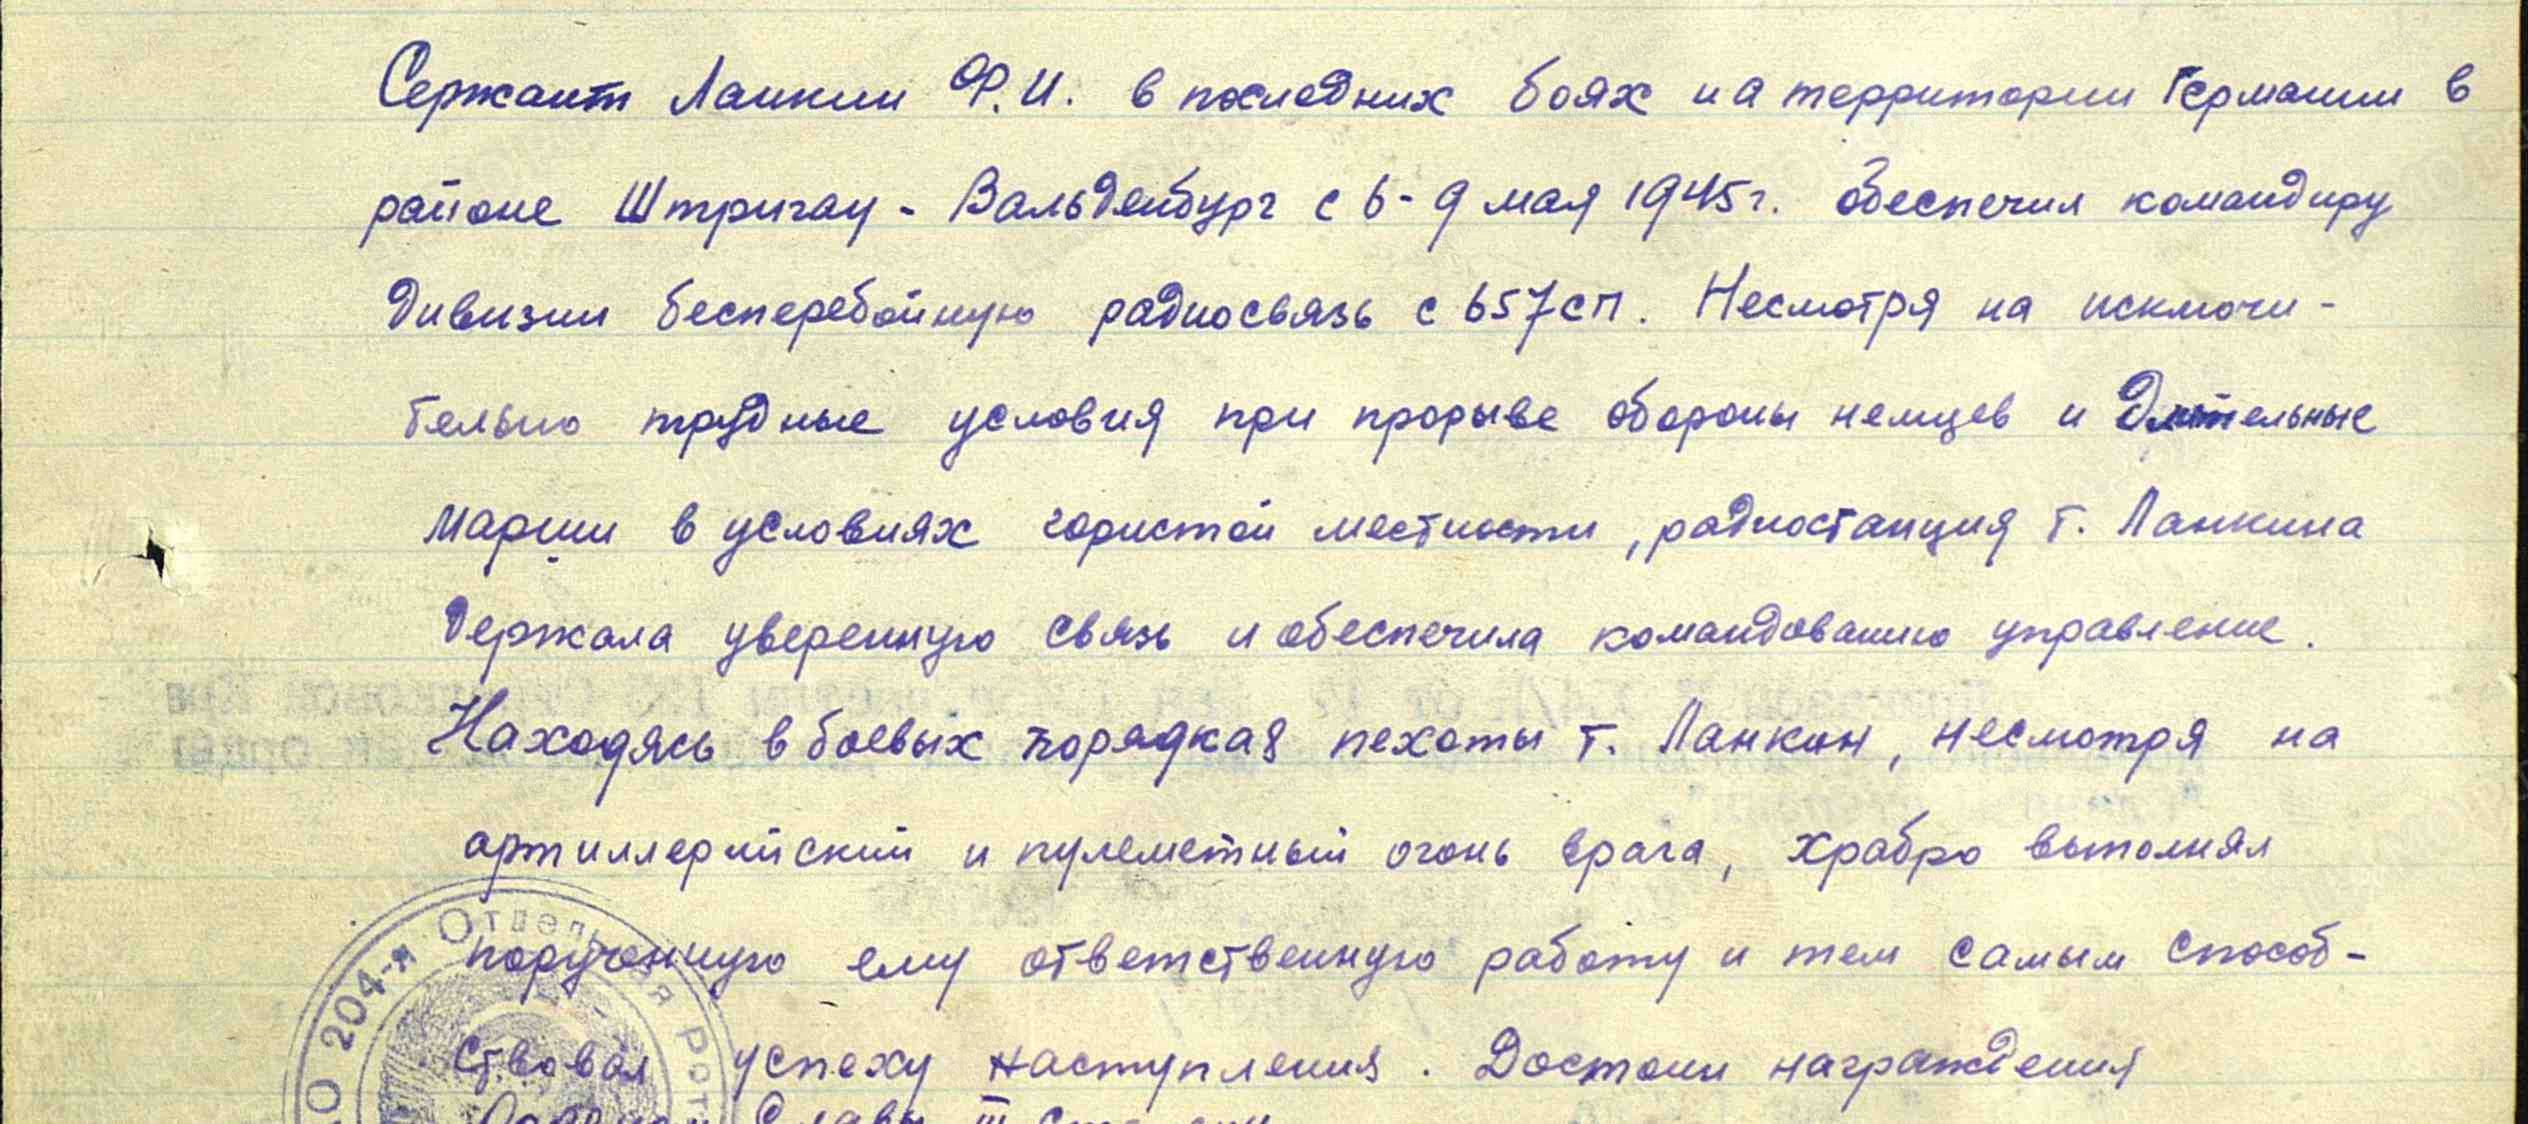 Сержант Ланкин Ф.И. в последних боях на территории Германии в
районе Штригау - Вальденбург с 6-9 мая 1945г. обеспечил командиру
дивизии бесперебойную радиосвязь с 657сп. Несмотря на исключи-
тельно трудные условия при прорыве обороны немцев и длительные
марши в условиях гористой местности, радиостанция т. Ланкина
держала уверенную связь и обеспечила командованию управление.
Находясь в боевых порядках пехоты т. Ланкин, несмотря на
артиллерийский и пулеметный огонь врага, храбро выполнял
порученную ему ответственную работу и тем самым способ-
ствовал успеху наступления. Достоин награждения
Славы III степени
204-я Отдельная Рот